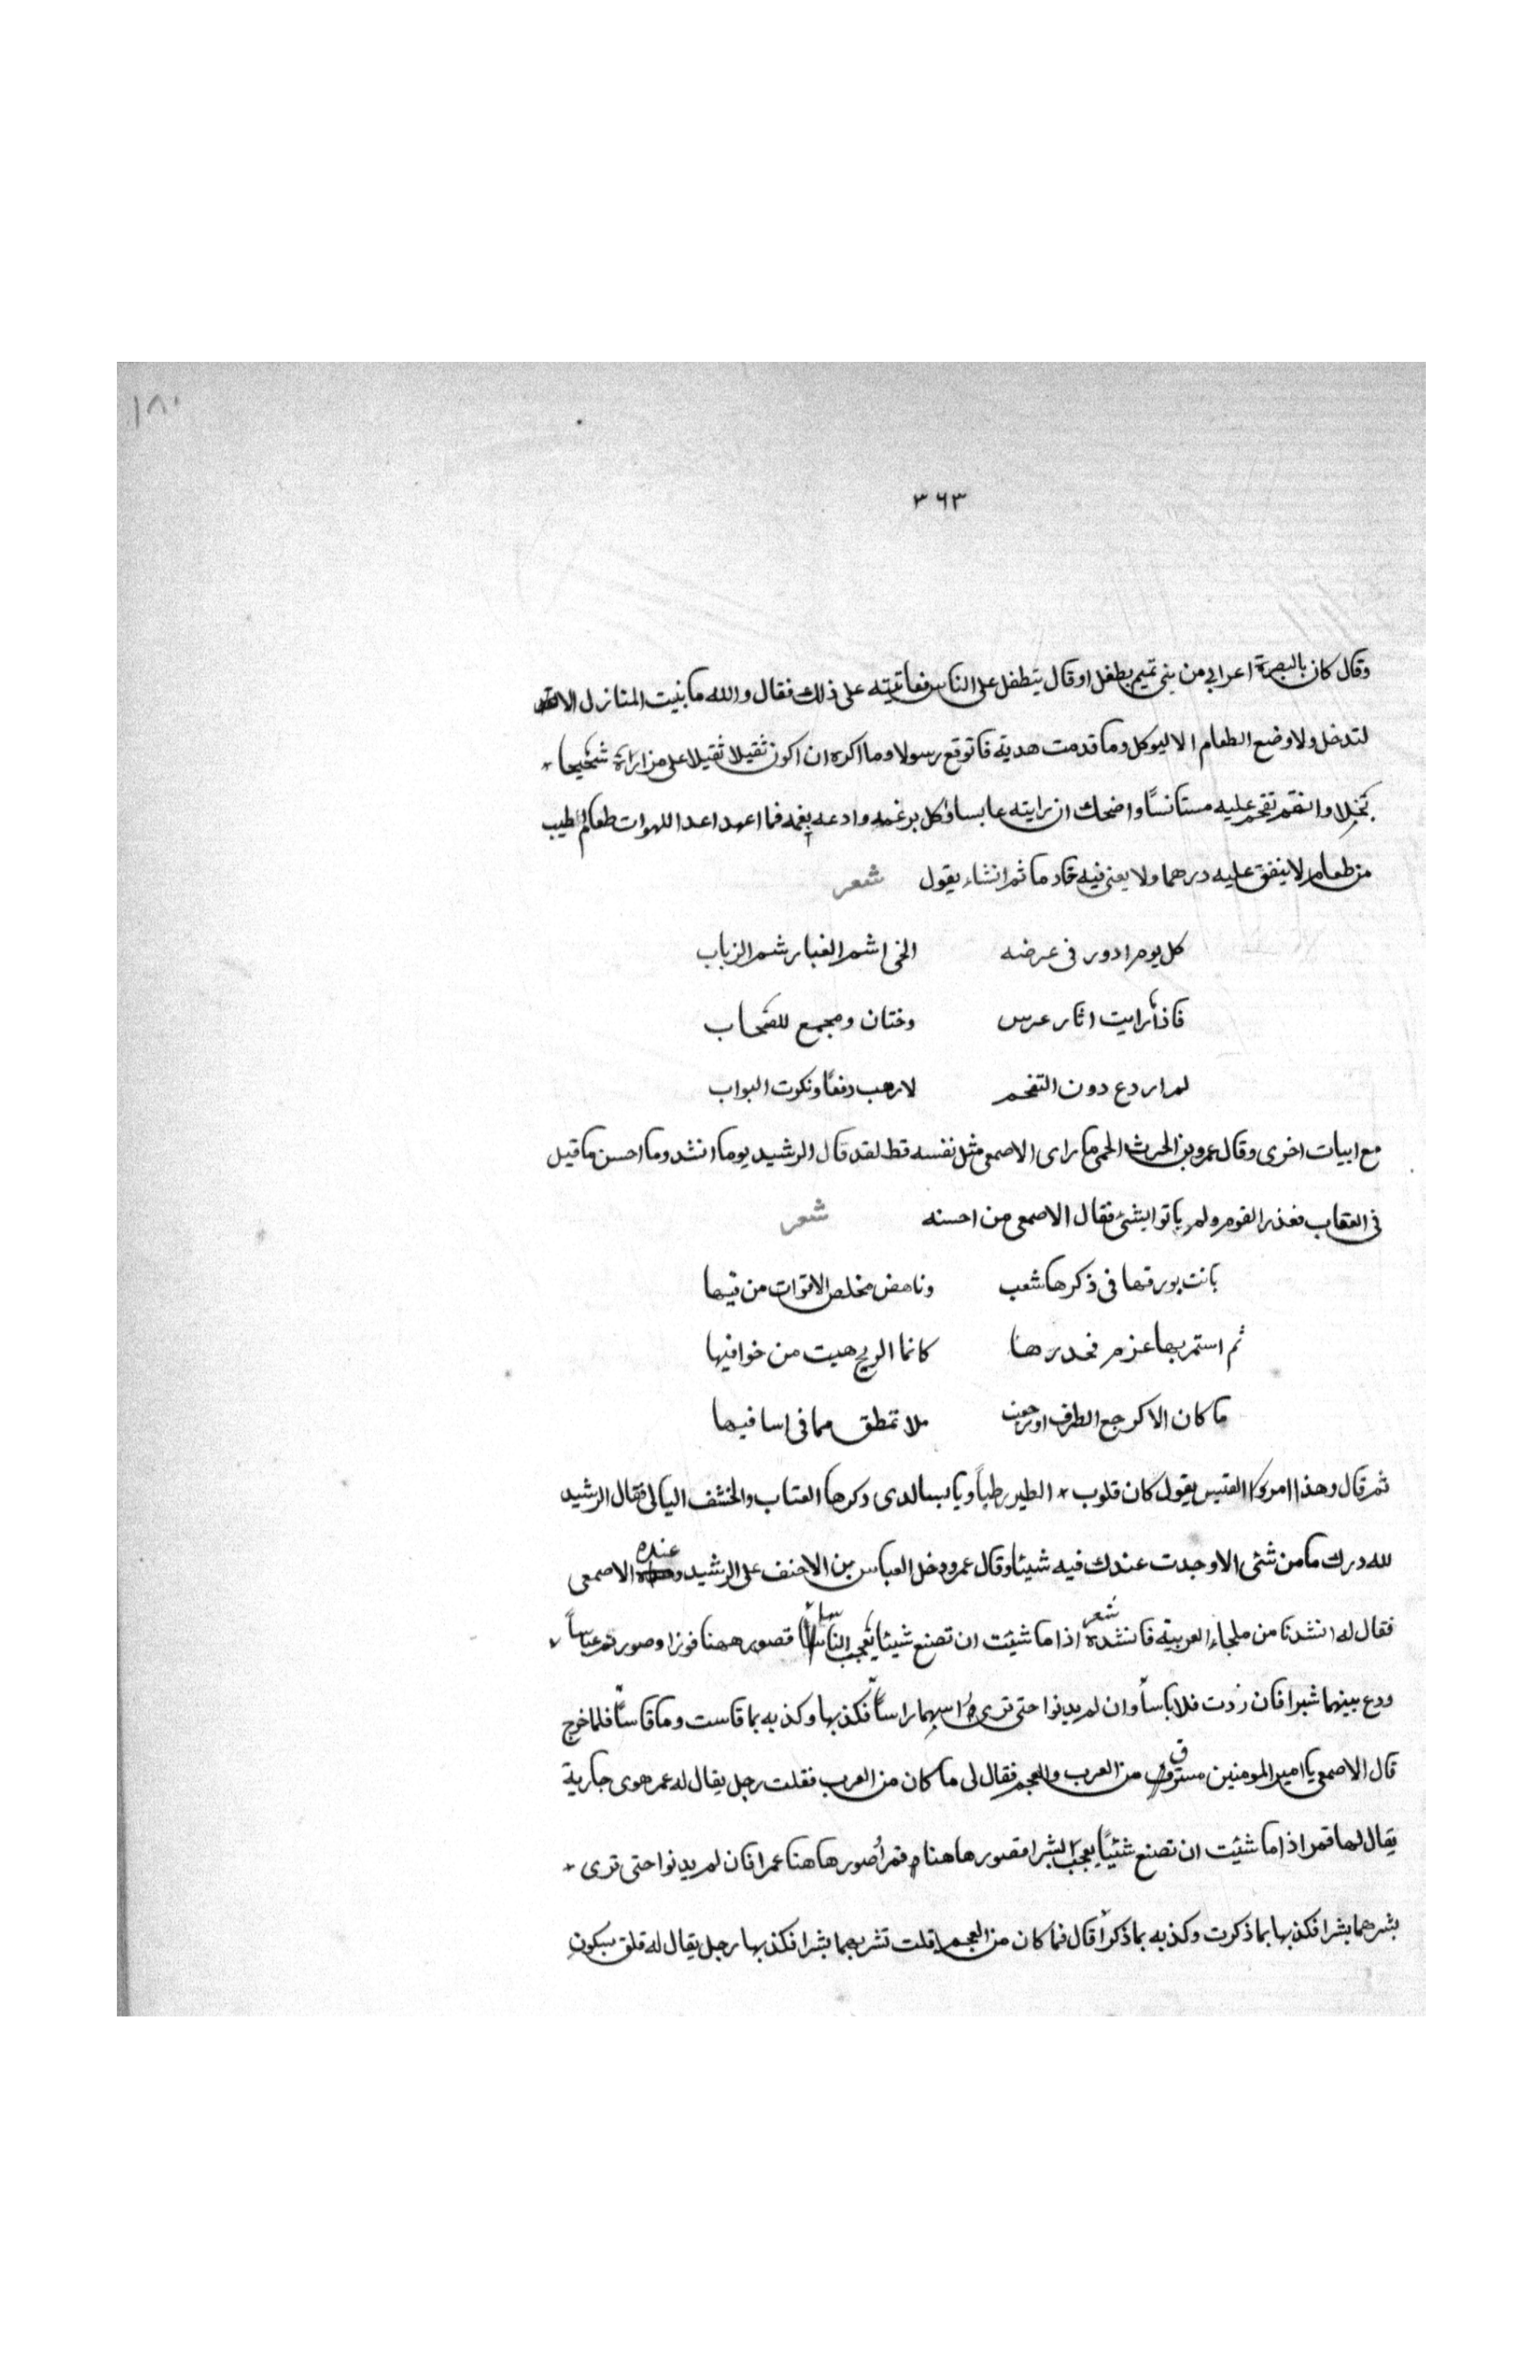 ١٨٠
٣٦٣
وقال كان بالبصرة اعرابي من بني تميم يطفل او قال يتطفل على الناس فعاتبته على ذلك فقال والله ما بنيت المنازل الا
لتدخل ولا وضع الطعام الا ليوكل وما قدمت هدية فاتوقع رسولا وما اكره ان اكون ثقيلا ثقيلا على من اراه شحيحا
بخيلا واتقحم عليه مستانسًا واضحك ان رايته عابسا واكل برغمه وادعه بغمه فما اعهد اعد اللهوات طعام اطيب
من طعام لا ينفق عليه درهما ولا يعنى فيه خادما ثم انشاء يقول شعر
كل يوم ادور فى عرضه الخى اشم الغبار شم الزباب
فاذا رايت اثار عرس وختان ومجمع للصحاب
لم اردع دون التفخم لا رهب دفعًا ونكوت البواب
مع ابيات اخرى وقال عمرو بن الحرث الحمى ما راى الاصمعى مثل نفسه قط لقد قال الرشيد يوما انشدوما احسن ما قيل
فى العقاب فعذر القوم ولم ياتوا بشئ فقال الاصمعى من احسنه شعر
بانت بورقها فى ذكرها شعب وناهض مخلص الاقوات من فيها
ثم استمر بها عزم فحدرها كانما الريح هبت من خوافيها
ما كان الا كرجع الطرف او رجعت ملا تمطق مما فى اسافيها
ثم قال وهذا امرؤ القيس يقول كان قلوب الطير رطبًا ويابسا لدى وكرها العناب والخشف البالى فقال الرشيد
لله درك ما من شئ الا وجدت عندك فيه شيئا وقال عمرو دخل العباس بن الاحنف على الرشيد وعنده الاصمعى
فقال له انشدنا من ملجاء العربية فانشده شعر اذا ما شيئت ان تصنع شيئا يعجب الناسا فصور ههنا فوزا وصور ثم عباسًا
ودع بينهما شبرا فان زدت فلا باسًا وان لم يدنوا حتى ترى راسيهما راسًا فكذبها وكذبه بما قاست وما قاسًا فلما خرج
قال الاصمعى يا امير المومنين مسترق من العرب والعجم فقال لى ما كان من العرب فقلت رجل يقال له عمر هوى جارية
يقال لها قمر اذا ما شيئت ان تصنع شئيًا يعجب البشرا فصور هاهنا قمرا وصور هاهنا عمرا فان لم يدنوا حتى ترى
بشرهما بشرا فكذبها بما ذكرت وكذبه بما ذكرا قال فما كان من العجم قلت تشريهما بشرا فكذبها رجل يقال له فلق بسكون